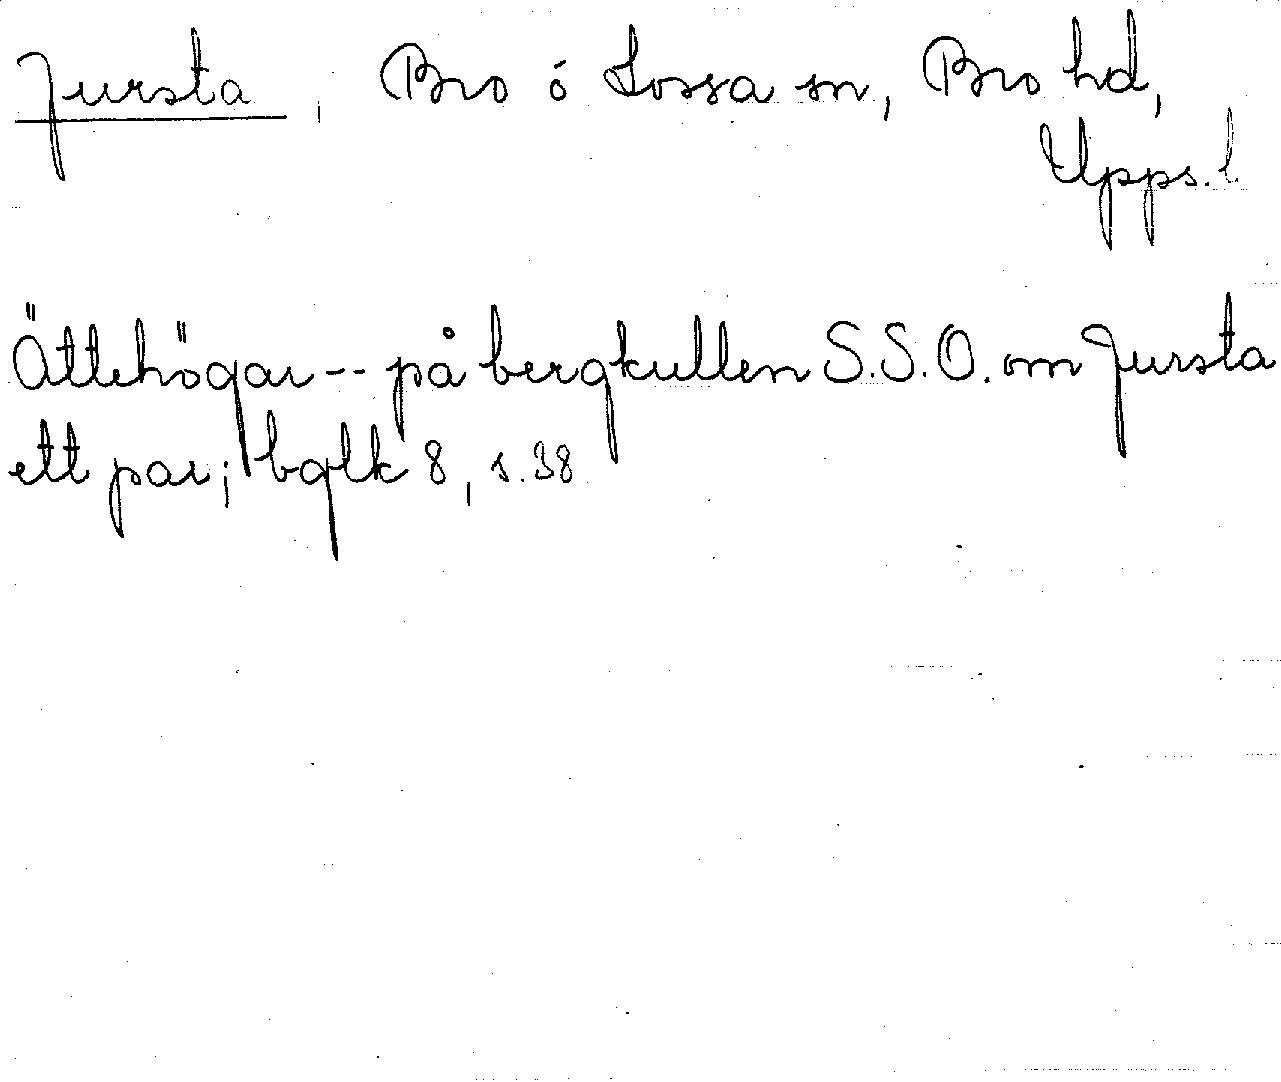 Jursta, Bro ó Lossa sn, Bro hd,
Upps. l
Ättehögar -- på bergkullen S.S.O. om Jursta
ett par; bglk 8, s. 38